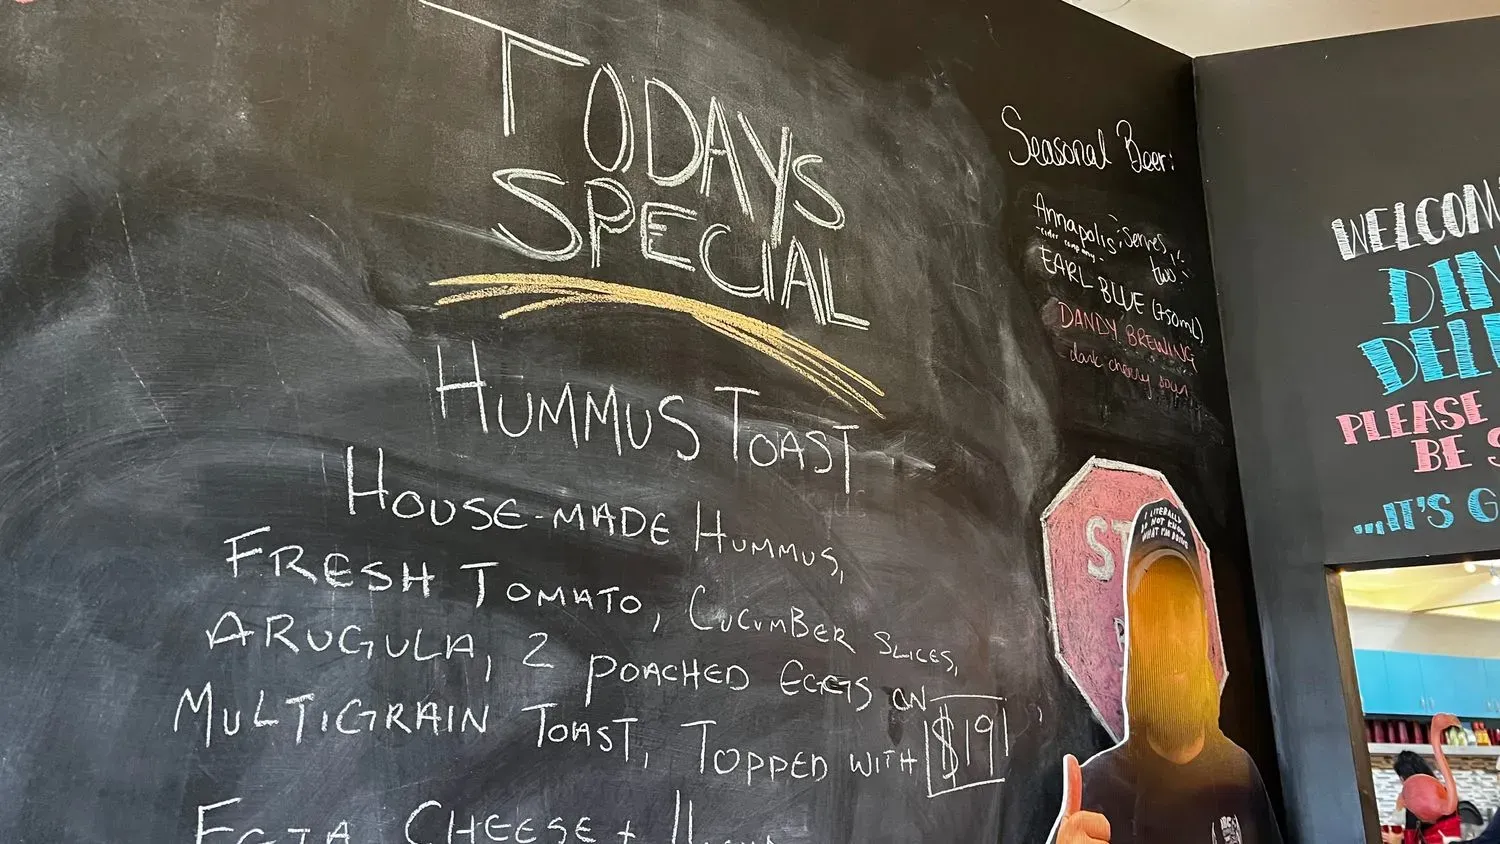 TODAYS
SPECIAL
HUMMUS TOAST
HOUSE-MADE HUMMUS,
FRESH TOMATO, CUCUMBER SLICES,
ARUGULA, 2 POACHED EGGS ON
MULTIGRAIN TOAST, TOPPED WITH
$19
CHEESE +
Seasonal Beer:
Annapolis: serves two
cider company
EARL BLUE (750mL)
DANDY BREWING
- dark cherry sour
ST
I LITERALLY
DO NOT KNOW
WHAT I'M DOING
WELCOM
DIN
DEL
PLEASE
BE S
...IT'S G